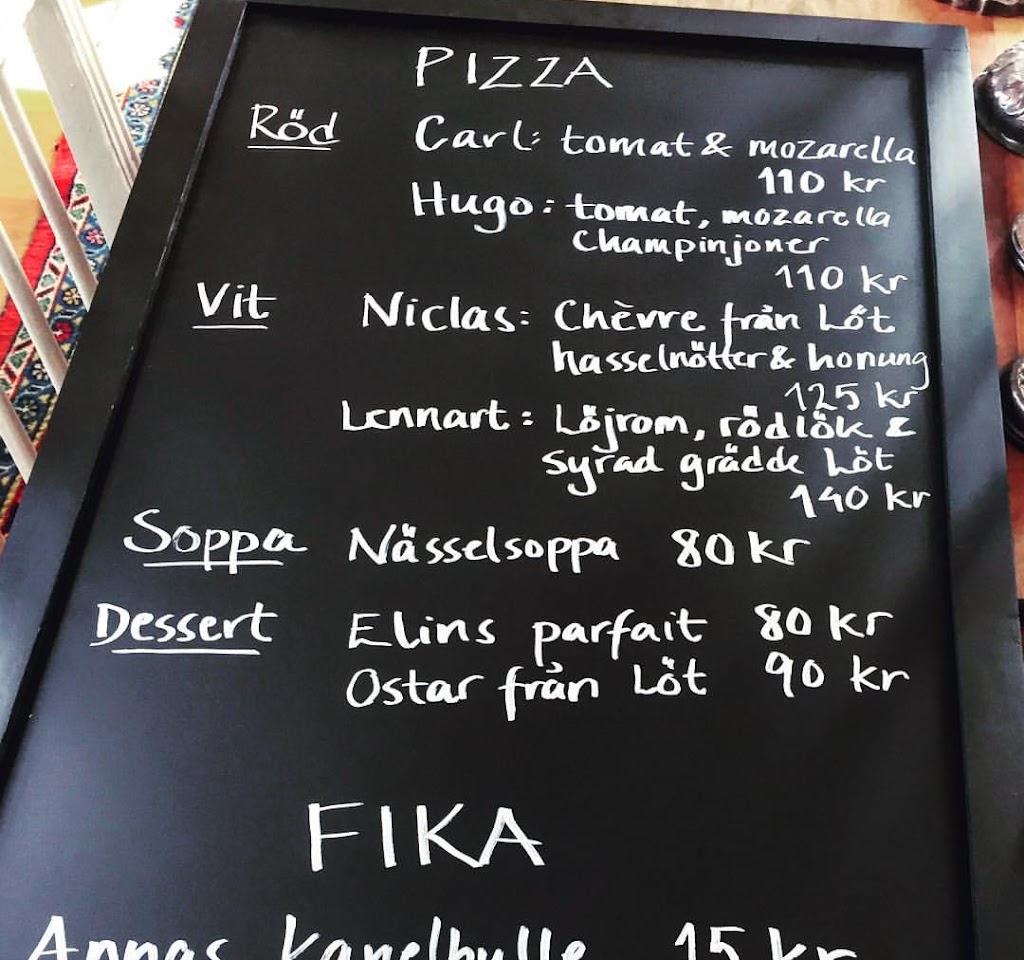 PIZZA
Röd Carl: tomat & mozarella
110 kr
Hugo: tomat, mozarella
Champinjoner
110 kr
Vit Niclas: Chèvre från Löt
hasselnötter & honung
125 kr
Lennart: Löjrom, rödlök &
syrad grädde Löt
140 kr
Soppa Nässelsoppa 80 kr
Dessert Elins parfait 80 kr
Ostar från Löt 90 kr
FIKA
Annas kanelbulle 15 kr